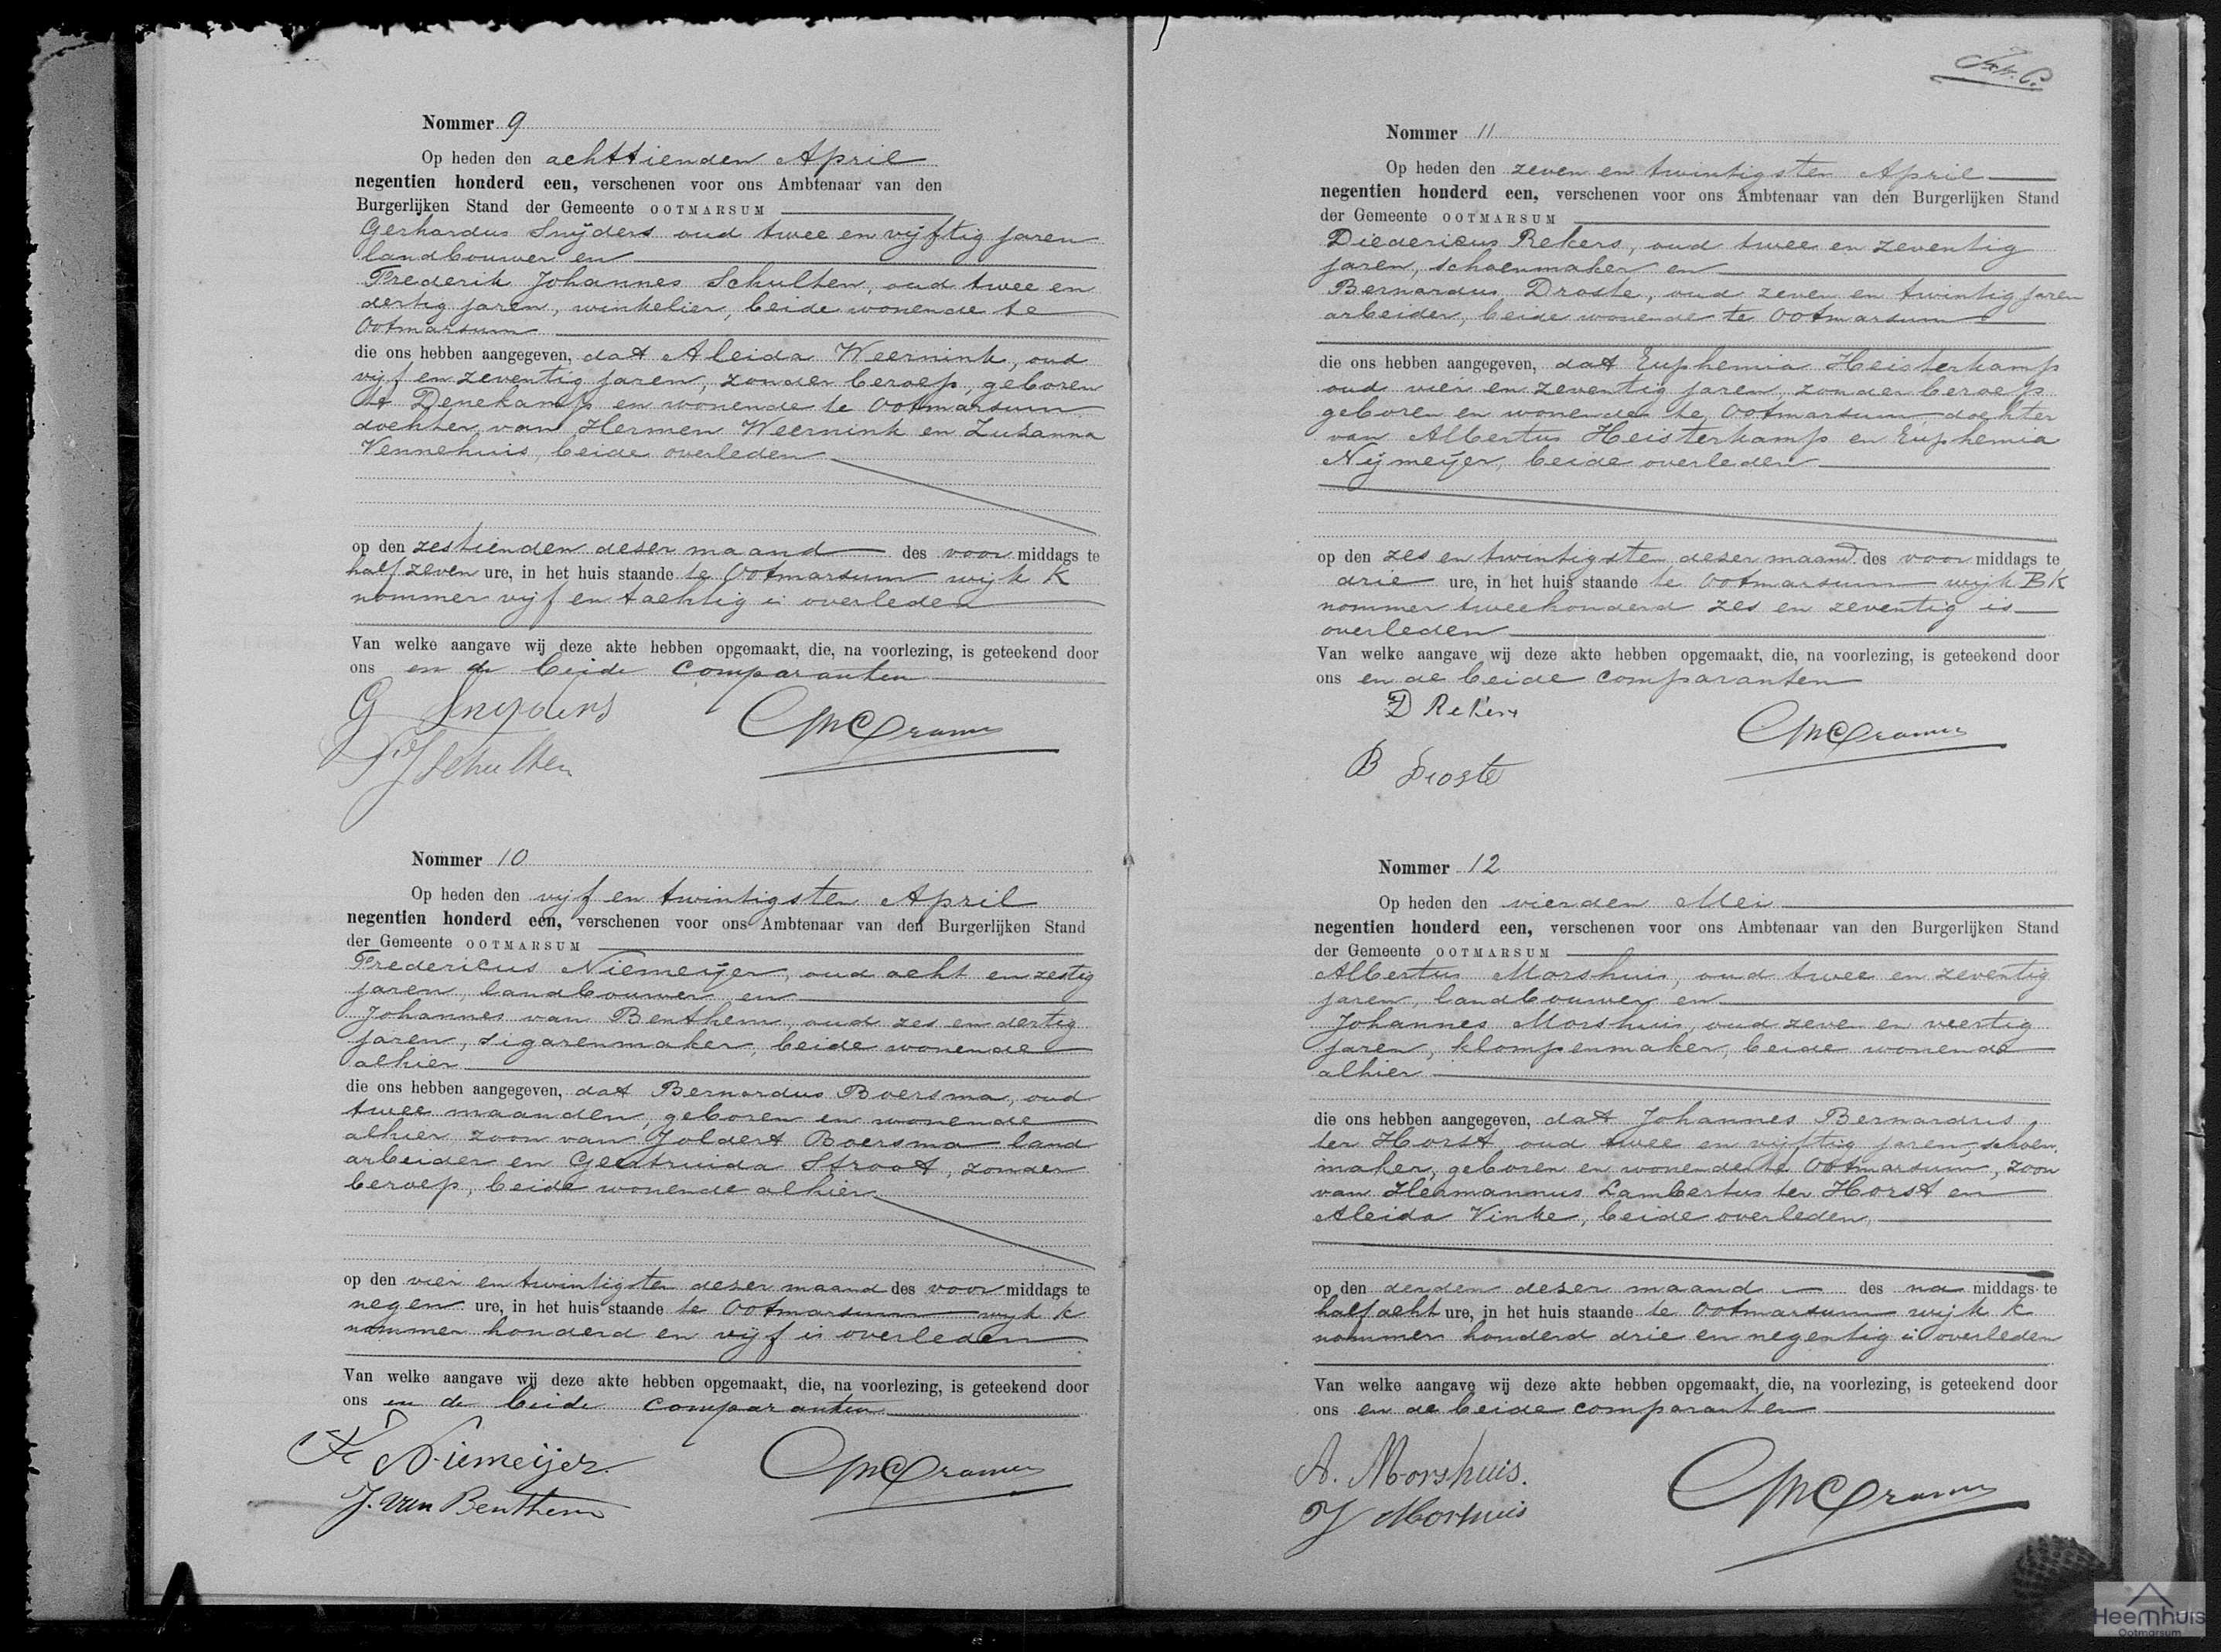 Nommer 9
Op heden den achttienden April
negentien honderd een, verschenen voor ons Ambtenaar van den
Burgerlijken Stand der Gemeente OOTMARSUM
Gerhardus Snijders oud twee en vijftig jaren
landbouwer en
Frederik Johannes Schulten, oud twee en
dertig jaren, winkelier, beide wonende te
Ootmarsum
die ons hebben aangegeven, dat Aleida Weernink, oud
vijf en zeventig jaren, zonder beroep, geboren
te Denekamp en wonende te Ootmarsum
dochter van Hermen Weernink en Zuzanna
Vennehuis, beide overleden
op den zestienden dezer maand des voor middags te
half zeven ure, in het huis staande te Ootmarsum wijk K
nommer vijf en tachtig is overleden
Van welke aangave wij deze akte hebben opgemaakt, die, na voorlezing, is geteekend door
ons en de beide comparanten
G Snijders
FJ Schulten
Nommer 10
Op heden den vijf en twintigsten April
negentien honderd een, verschenen voor ons Ambtenaar van den Burgerlijken Stand
der Gemeente OOTMARSUM
Fredericus Niemeijer, oud acht en zestig
jaren, landbouwer en
Johannes van Benthem, oud zes en dertig
jaren, sigarenmaker, beide wonende
alhier
die ons hebben aangegeven, dat Bernardus Boersma, oud
twee maanden, geboren en wonende
alhier zoon van Joldert Boersma land
arbeider en Geertruida Stroot, zonder
beroep, beide wonende alhier
op den vier en twintigsten dezer maand des voor middags te
negen ure, in het huis staande te Ootmarsum wijk K
nommer honderd en vijf is overleden
Van welke aangave wij deze akte hebben opgemaakt, die, na voorlezing, is geteekend door
ons en de beide comparanten
F Niemeijer
J. van Benthem
Nommer 11
Op heden den zeven en twintigsten April
negentien honderd een, verschenen voor ons Ambtenaar van den Burgerlijken Stand
der Gemeente OOTMARSUM
Diedericus Rekers, oud twee en zeventig
jaren, schoenmaker en
Bernardus Droste, oud zeven en twintig jaren
arbeider, beide wonende te Ootmarsum
die ons hebben aangegeven, dat Euphemia Heisterkamp
oud vier en zeventig jaren, zonder beroep
geboren en wonende te Ootmarsum dochter
van Albertus Heisterkamp en Euphemia
Nijmeijer, beide overleden
op den zes en twintigsten dezer maand des voor middags te
drie ure, in het huis staande te Ootmarsum wijk BK
nommer tweehonderd zes en zeventig is
overleden
Van welke aangave wij deze akte hebben opgemaakt, die, na voorlezing, is geteekend door
ons en de beide comparanten
D Rekers
B Droste
Nommer 12
Op heden den vierden Mei
negentien honderd een, verschenen voor ons Ambtenaar van den Burgerlijken Stand
der Gemeente OOTMARSUM
Albertus Morshuis, oud twee en zeventig
jaren, landbouwer en
Johannes Morshuis, oud zeven en veertig
jaren, klompenmaker, beide wonende
alhier
die ons hebben aangegeven, dat Johannes Bernardus
ter Horst, oud twee en vijftig jaren, schoen
maker, geboren en wonende te Ootmarsum, zoon
van Hermannus Lambertus ter Horst en
Aleida Vinke, beide overleden,
op den derden dezer maand des na middags te
half acht ure, in het huis staande te Ootmarsum wijk K
nommer honderd drie en negentig is overleden
Van welke aangave wij deze akte hebben opgemaakt, die, na voorlezing, is geteekend door
ons en de beide comparanten
A. Morshuis.
J Morshuis
Heemhuis
Ootmarsum